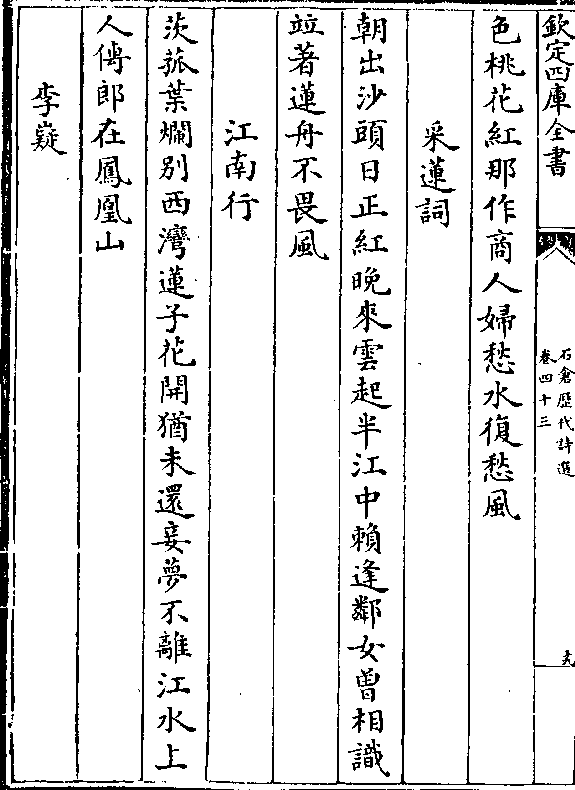 欽定四庫全書
石倉歷代詩選
卷四十三
十九
色桃花紅那作商人婦愁水復愁風
采蓮詞
朝出沙頭日正紅晚來雲起半江中賴逢鄰女曾相識
竝著蓮舟不畏風
江南行
茨菰葉爛別西灣蓮子花開猶未還妾夢不離江水上
人傳郎在鳳凰山
李嶷